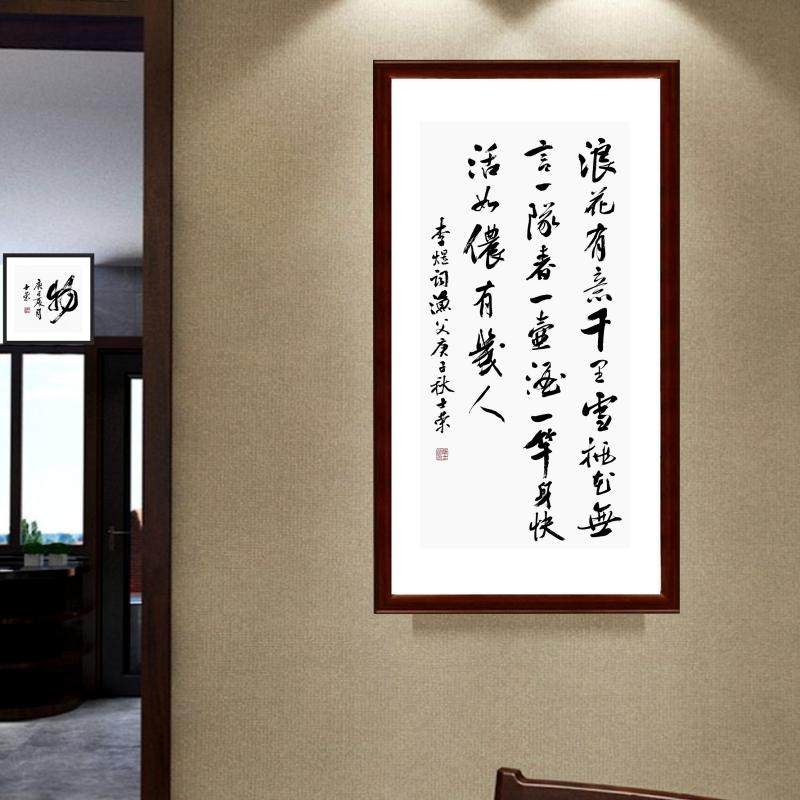 浪花有意千里雪桃花無
言一隊春一壺酒一竿身快
活如儂有幾人
李煜詞漁父庚子秋士荣
庚子夏月
士荣